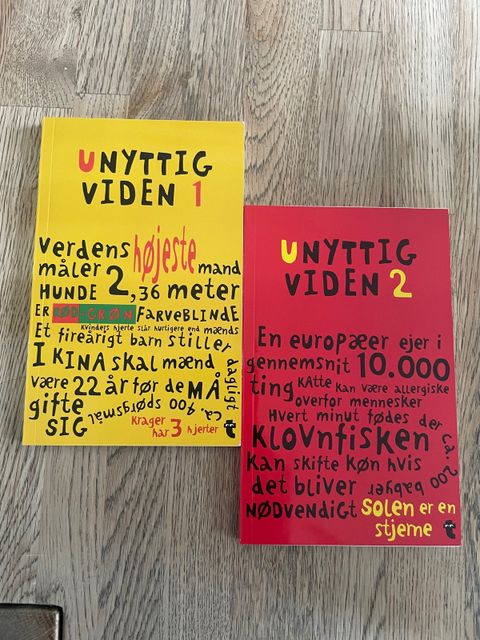 UNYTTIG
VIDEN 1
Verdens højeste mand
måler 2,36 meter
HUNDE
ER RØD-GRØN FARVEBLINDE
Kvinders hjerte slår hurtigere end mænds
Et fireårigt barn stiller
ca. 400 spørgsmål dagligt
I KINA skal mænd
være 22 år før de MÅ
gifte
SIG
Krager
har 3 hjerter
UNYTTIG
VIDEN 2
En europæer ejer i
gennemsnit 10.000
ting
Katte kan være allergiske
overfor mennesker
Hvert minut fødes der
ca. 200 babyer
Klovnfisken
kan skifte køn hvis
det bliver
NØDVENDIGT
SOLEN er en
stjerne